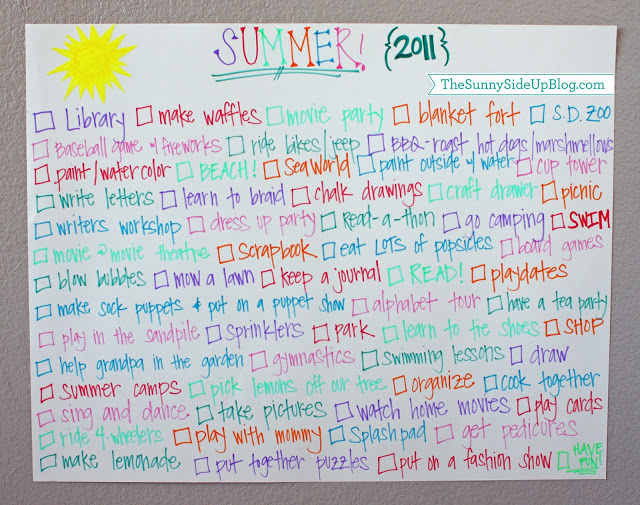 SUMMER! {2011}
TheSunnySideUpBlog.com
Library make waffles movie party blanket fort S.D. ZOO
Baseball game w/ fireworks ride bikes/jeep BBQ-roast hot dogs/marshmellows
paint/watercolor BEACH! Sea World paint outside w/ water cup tower
write letters learn to braid chalk drawings craft drawer picnic
writers workshop dress up party Read-a-thon go camping SWIM
movie @ movie theatre Scrapbook eat LOTS of popsicles board games
blow bubbles mow a lawn keep a journal READ! playdates
make sock puppets & put on a puppet show alphabet tour have a tea party
play in the sandpile Sprinklers park learn to tie shoes SHOP
help grandpa in the garden gymnastics Swimming lessons draw
summer camps pick lemons off our tree organize cook together
sing and dance take pictures watch home movies play cards
ride 4-wheelers play with mommy Splash pad get pedicures
make lemonade put together puzzles put on a fashion show HAVE FUN!